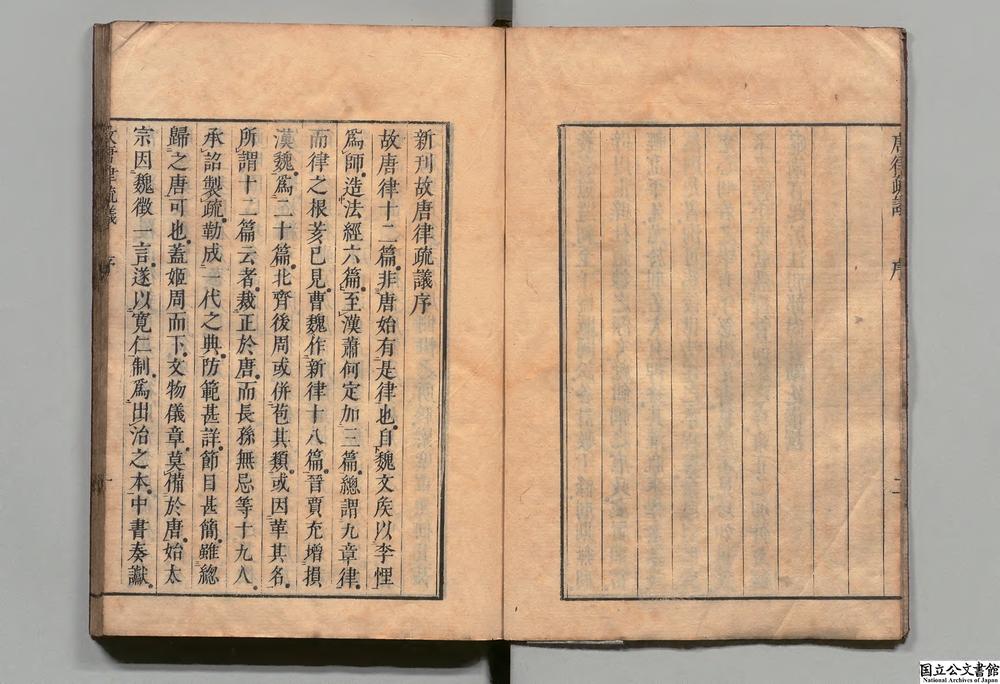 唐律疏議 序 二
新刊故唐律疏議序
故唐律十二篇非唐始有是律也自魏文矦以李悝
爲師造法經六篇至漢蕭何定加三篇總謂九章律
而律之根荄已見曹魏作新律十八篇晉賈充增損
漢魏爲二十篇北齊後周或併苞其類或因革其名
所謂十二篇云者裁正於唐而長孫無忌等十九人
承詔製疏勒成一代之典防範甚詳節目甚簡雖總
歸之唐可也蓋姬周而下文物儀章莫備於唐始太
宗因魏徵一言遂以寛仁制爲出治之本中書奏讞
故唐律疏議 序 一
国立公文書館
National Archives of Japan